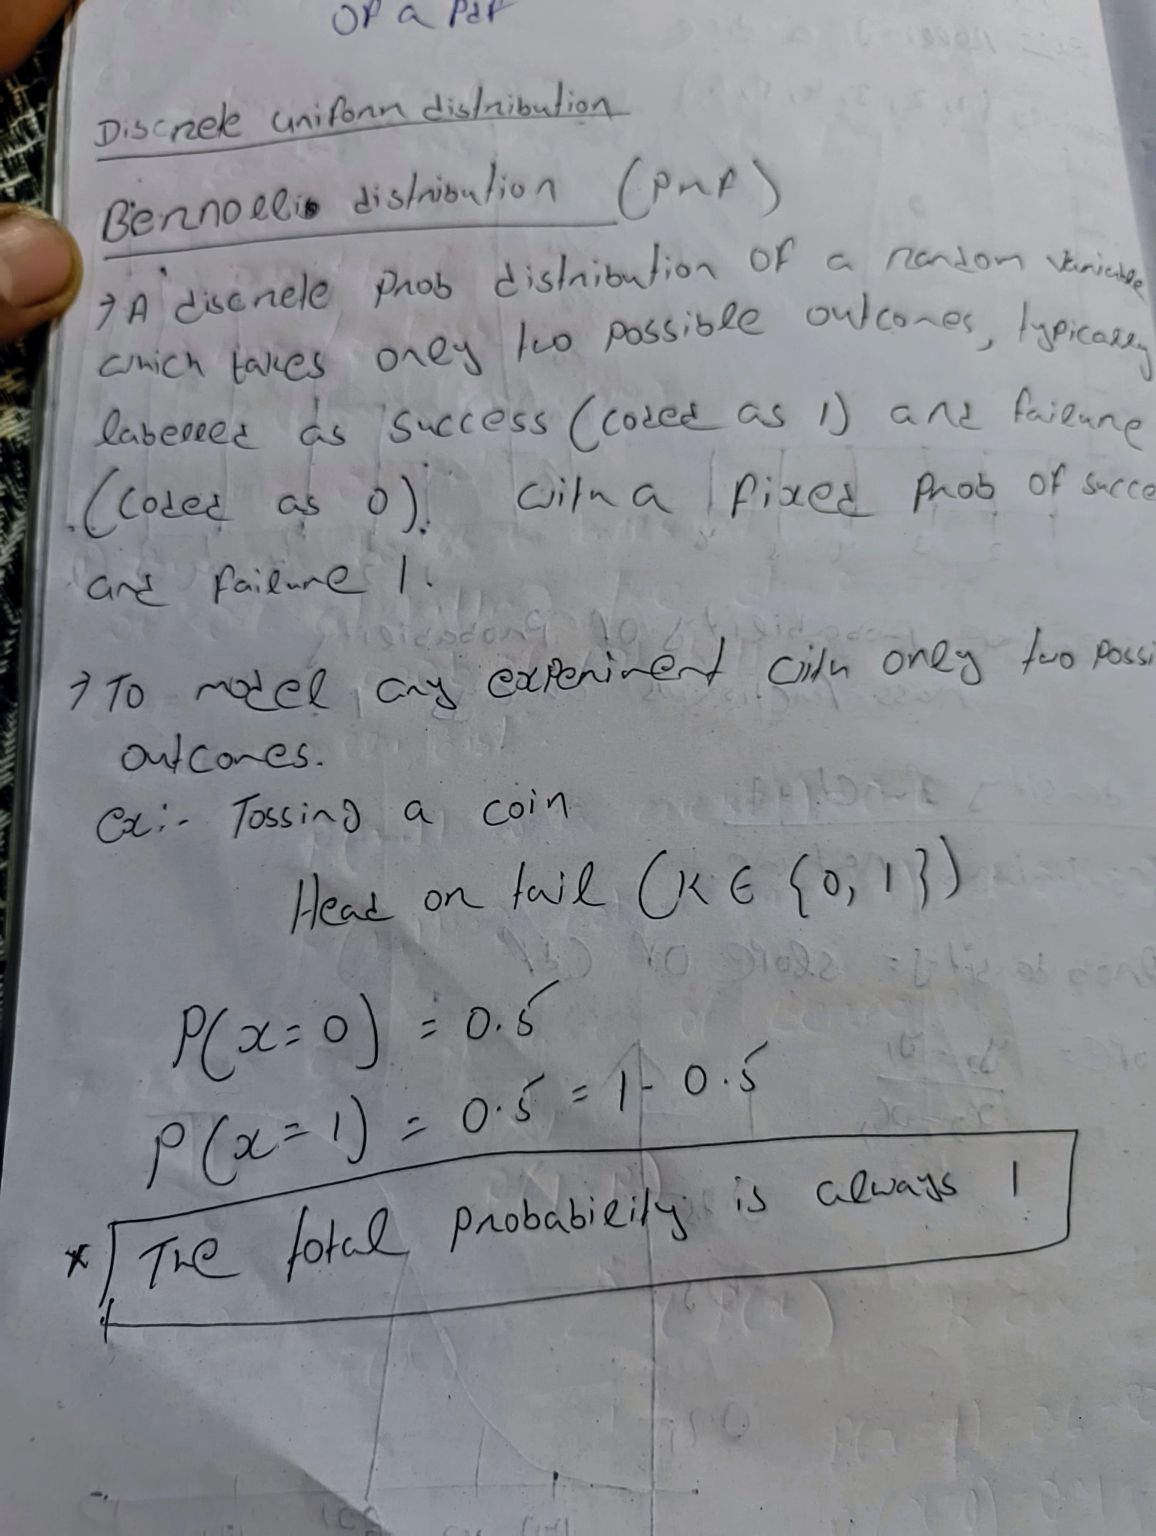 of a pdf
Discrete uniform distribution
Bernoelli distribution (pmf)
→ A discrete prob distribution of a random variable
which takes only two possible outcomes, typically
labelled as success (coded as 1) and failure
(coded as 0). with a fixed prob of succe
and failure 1.
→ To model any experiment with only two possi
outcomes.
ex:- Tossing a coin
Head or tail (K ∈ {0, 1})
P(x=0) = 0.5
P(x=1) = 0.5 = 1 - 0.5
* The total probability is always 1